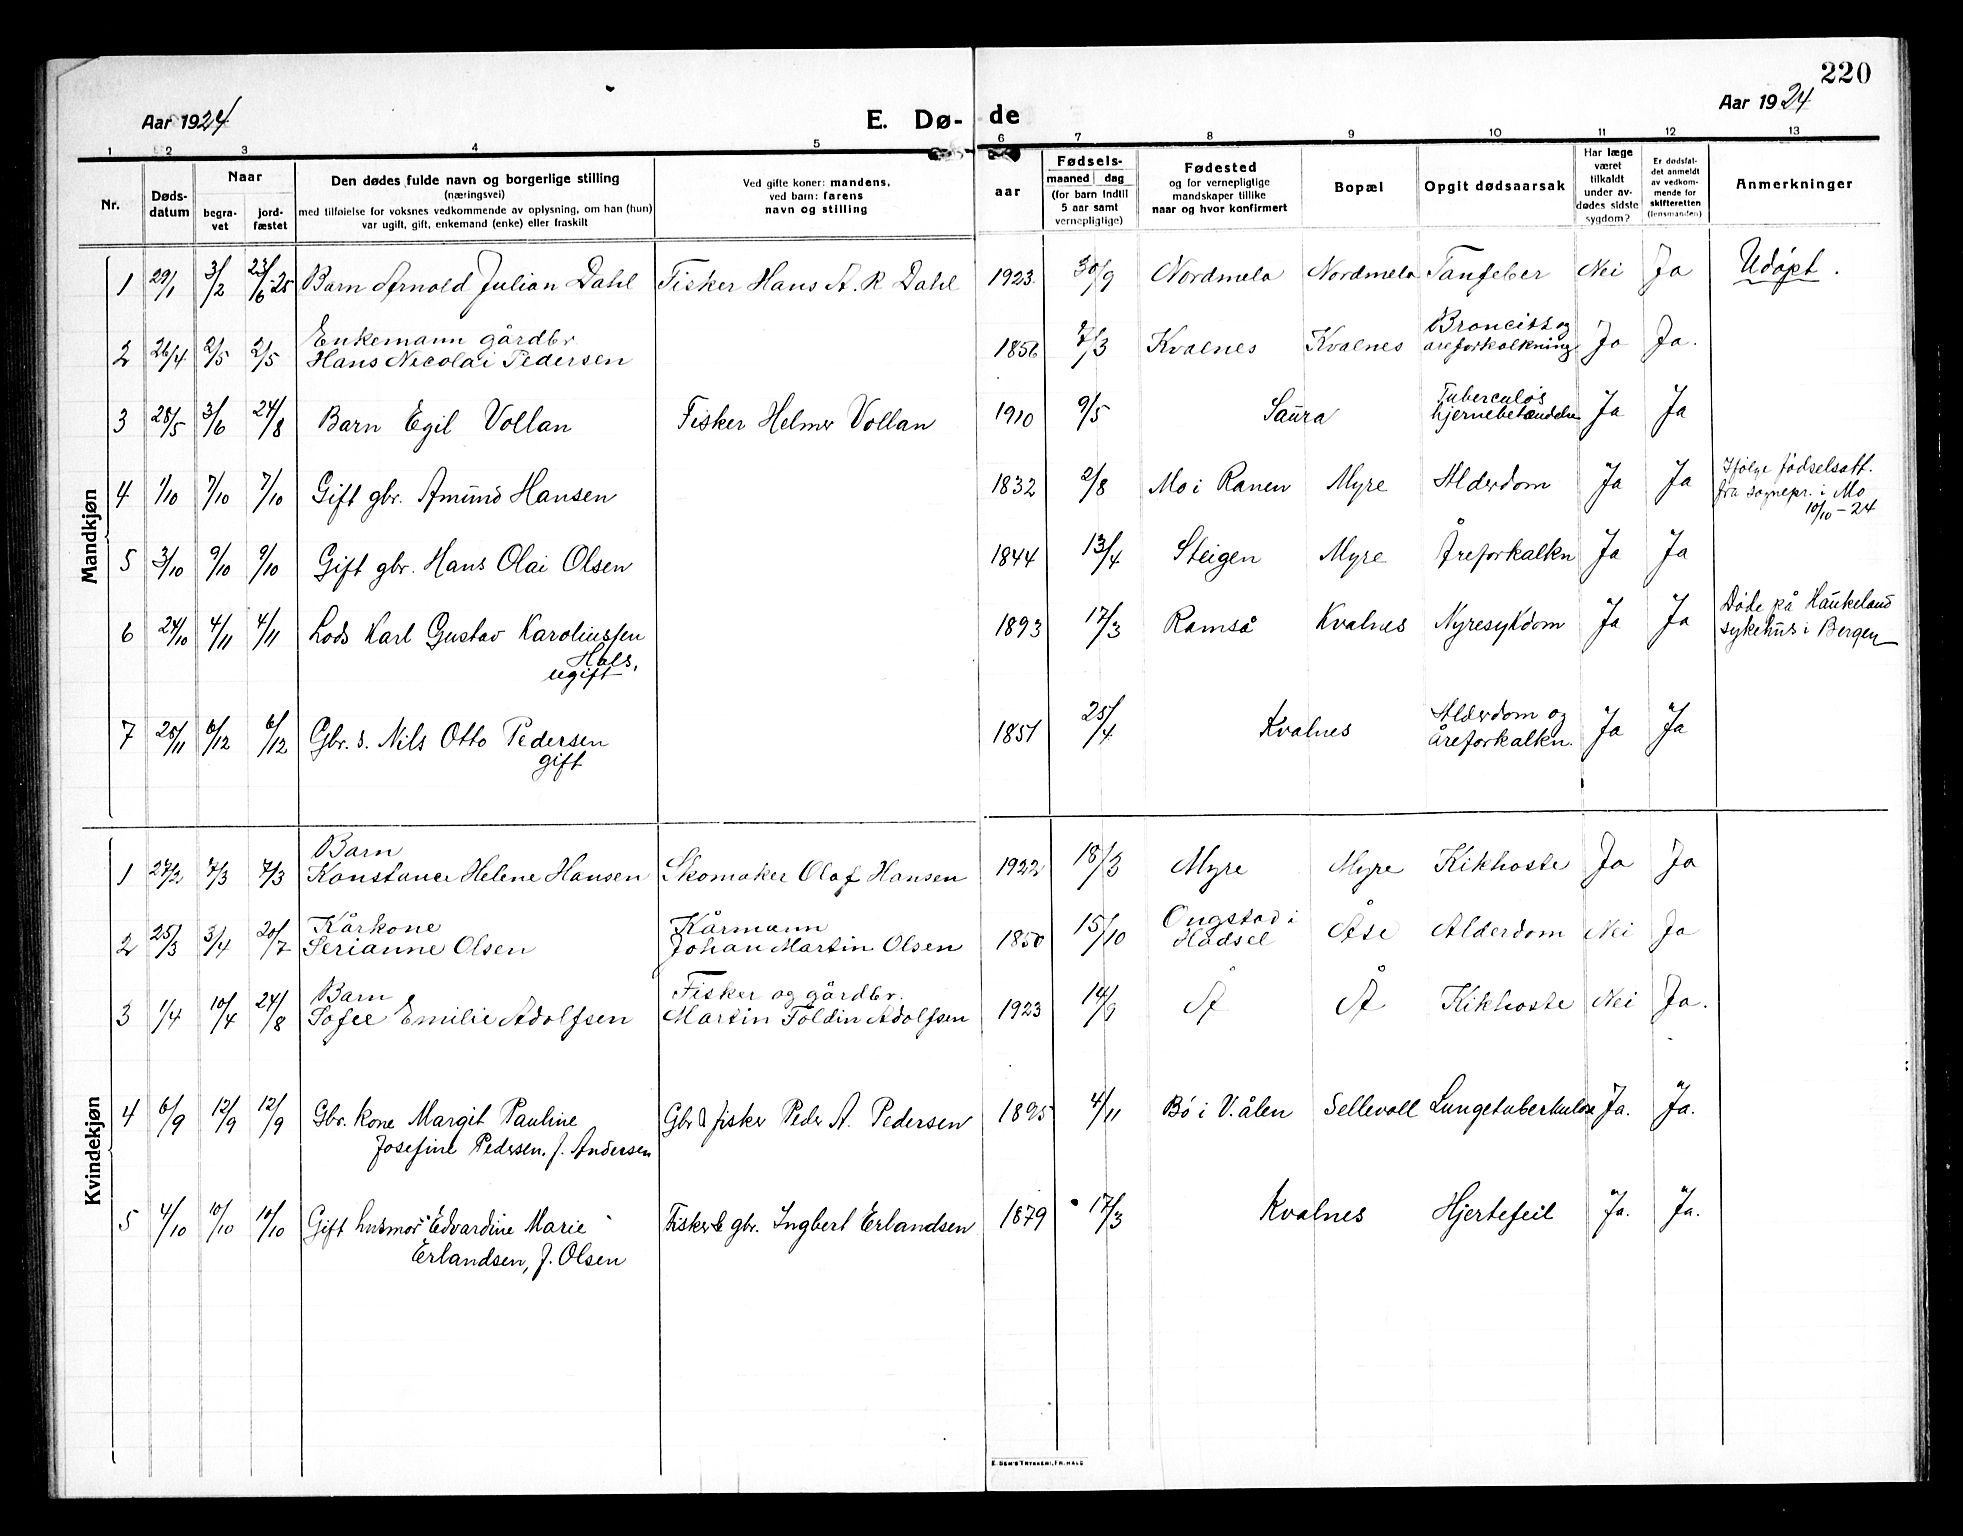 220
Aar 1924 E. Dø- de Aar 1924
1 2 3 4 5 6 7 8 9 10 11 12 13
Nr. Døds-datum Naar begra-vet jord-fæstet Den dødes fulde navn og borgerlige stilling (næringsvei) med tilføielse for voksnes vedkommende av oplysning, om han (hun) var ugift, gift, enkemand (enke) eller fraskilt Ved gifte koner: mandens, ved barn: farens navn og stilling aar Fødsels- maaned dag (for barn indtil 5 aar samt vernepligtige) Fødested og for vernepligtige mandskaper tillike naar og hvor konfirmert Bopæl Opgit dødsaarsak Har læge været tilkaldt under av-dødes sidste sygdom? Er dødsfal-det anmeldt av vedkom-mende for skifteretten (lensmanden) Anmerkninger
Mandkjøn
1 29/1 3/2 23/6-25 Barn Arnold Julian Dahl Fisker Hans A. R Dahl 1923 30/9 Nordmela Nordmela Tanfeber Nei Ja Udøpt.
2 26/4 2/5 2/5 Enkemann gårdbr. Hans Nicolai Pedersen 1856 7/3 Kvalnes Kvalnes Broncitt og åreforkalkning Ja Ja.
3 28/5 3/6 24/8 Barn Egil Vollan Fisker Helmer Vollan 1910 9/5 Saura Tuberculøs hjernebetændelse Ja Ja
4 1/10 7/10 7/10 Gift gbr. Amund Hansen 1832 2/8 Mo i Ranen Myre Alderdom Ja Ja Ifølge fødselsatt. fra sognepr. i Mo 10/10-24
5 3/10 9/10 9/10 Gift gbr. Hans Olai Olsen 1844 13/4 Steigen Myre Åreforkalkn Ja Ja
6 24/10 4/11 4/11 Lods Karl Gustav Karoliussen Hals, ugift 1893 17/3 Ramså Kvalnes Nyresykdom Ja Ja Døde på Haukeland sykehus i Bergen
7 25/11 6/12 6/12 Gbr. s. Nils Otto Pedersen gift 1851 25/4 Kvalnes Alderdom og åreforkalkn. Ja Ja
Kvindekjøn
1 27/2 7/3 7/3 Barn Konstance Helene Hansen Skomaker Olaf Hansen 1922 18/3 Myre Myre Kikhoste Ja Ja
2 25/3 3/4 20/7 Kårkone Serianne Olsen Kårmann Johan Martin Olsen 1850 15/10 Ongstad i Hadsel Åse Alderdom Nei Ja
3 1/4 10/4 24/8 Barn Sofie Emilie Adolfsen Fisker og gårdbr. Martin Toldin Adolfsen 1923 14/9 Å Å Kikhoste Nei Ja.
4 6/9 12/9 12/9 Gbr. kone Margit Pauline Josefine Pedersen, f. Andersen Gbr & fisker Peder A. Pedersen 1895 4/11 Bø i V.ålen Sellevoll Lungetuberkulose Ja. Ja.
5 4/10 10/10 10/10 Gift husmor Edvardine Marie Erlandsen, f. Olsen Fisker & gbr. Ingbert Erlandsen 1879 17/3 Kvalnes Hjertefeil Ja. Ja.
E. SEM'S TRYKKERI, FR.HALD